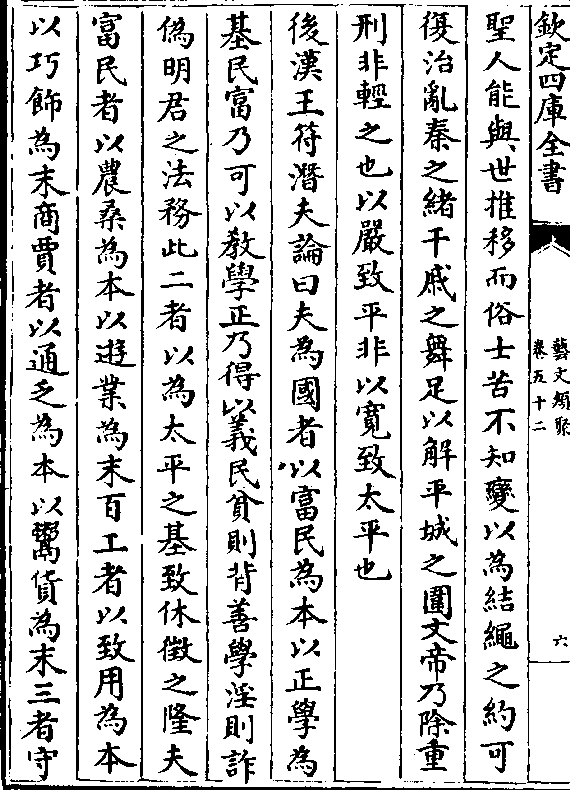 欽定四庫全書
藝文類聚
卷五十二
六
聖人能與世推移而俗士苦不知變以為結繩之約可
復治亂秦之緒干戚之舞足以解平城之圍文帝乃除重
刑非輕之也以嚴致平非以寛致太平也
後漢王符潛夫論曰夫為國者以富民為本以正學為
基民富乃可以教學正乃得以義民貧則背善學淫則詐
偽明君之法務此二者以為太平之基致休徵之隆夫
富民者以農桑為本以遊業為末百工者以致用為本
以巧飾為末商賈者以通乏為本以鬻貨為末三者守